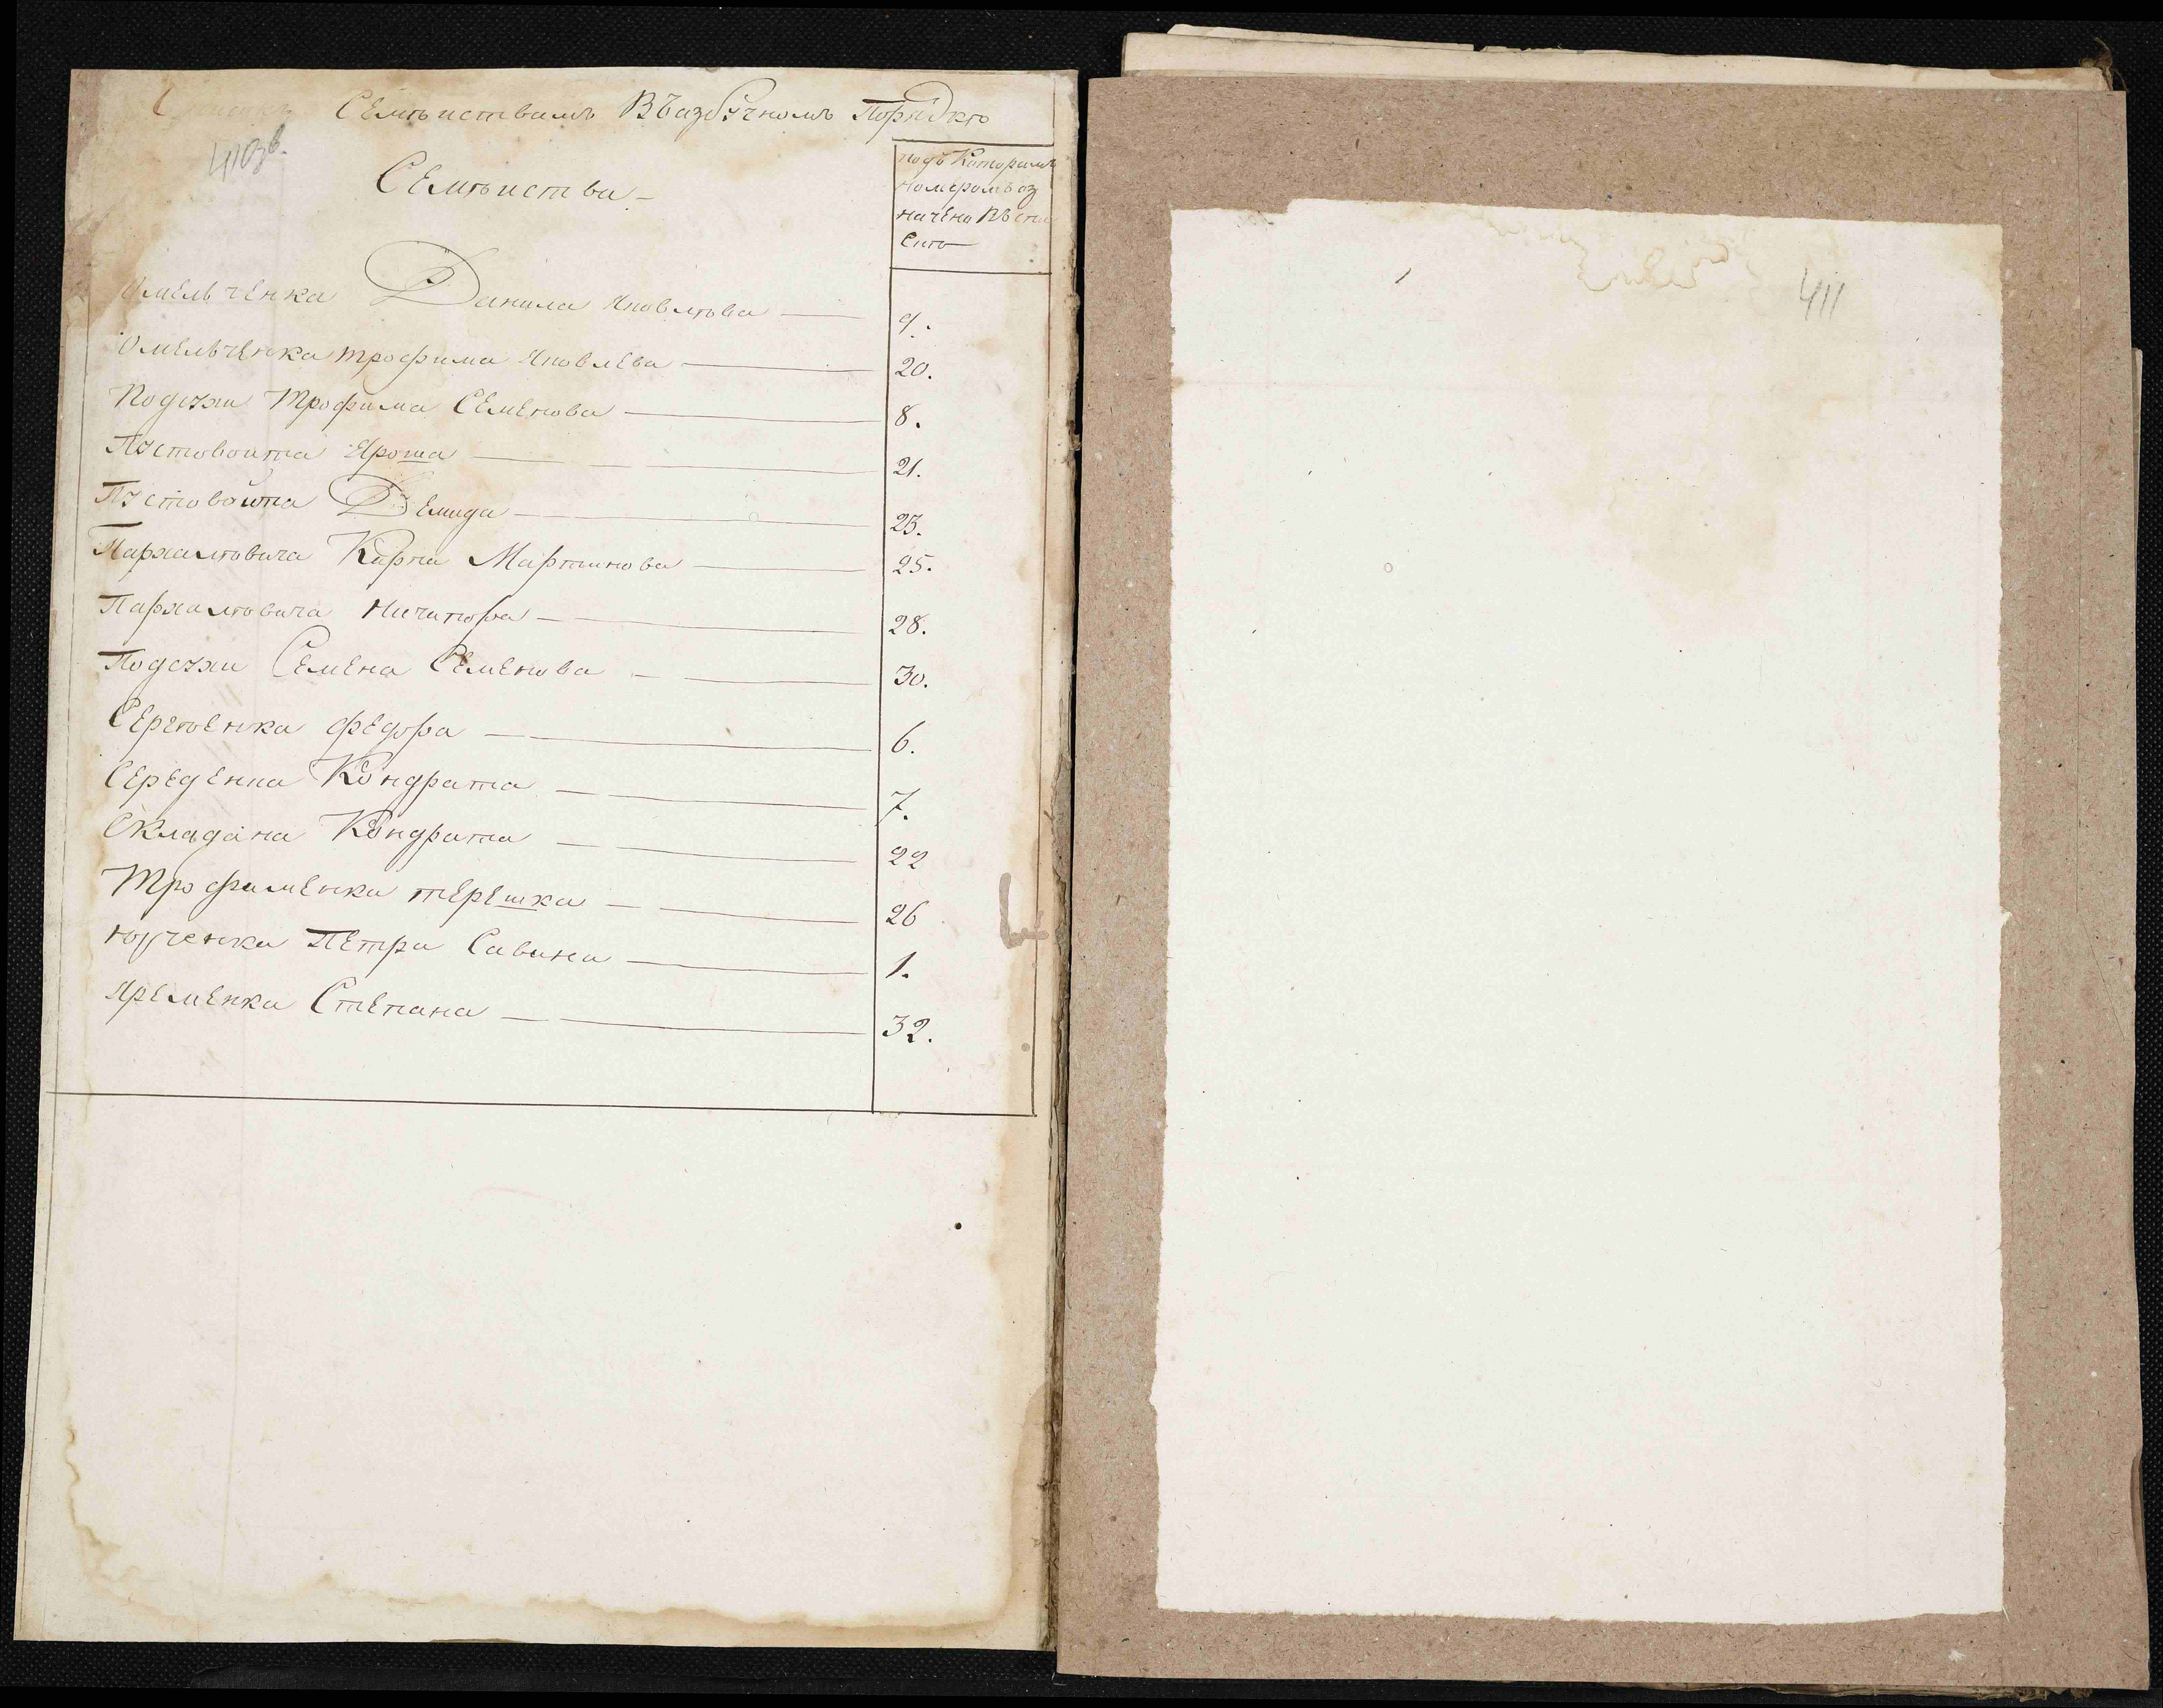 Семѣиствамъ Въазбучномъ Порядкѣ
410зв.
Семѣиства
подъ Которамъ
номеромъ оз
начено Въспи
скѣ
Омельченка Данила Яковлѣва 9.
Омельченка трофима Яковлева 20.
Подузжи Трофима Семенова 8.
Пустовоита Яроша 21.
Пустовойта Демида 23.
Пархамовича Карпа Мартинова 25.
Пархамовича Ничипора 28.
Подузжи Семена Семенова 30.
Сергѣенка федора 6.
Середенка Кондрата 7.
Складана Кондрата 22
Трофименка терешка 26
юрченка Петра Савина 1.
Яременка Степана 32.
411